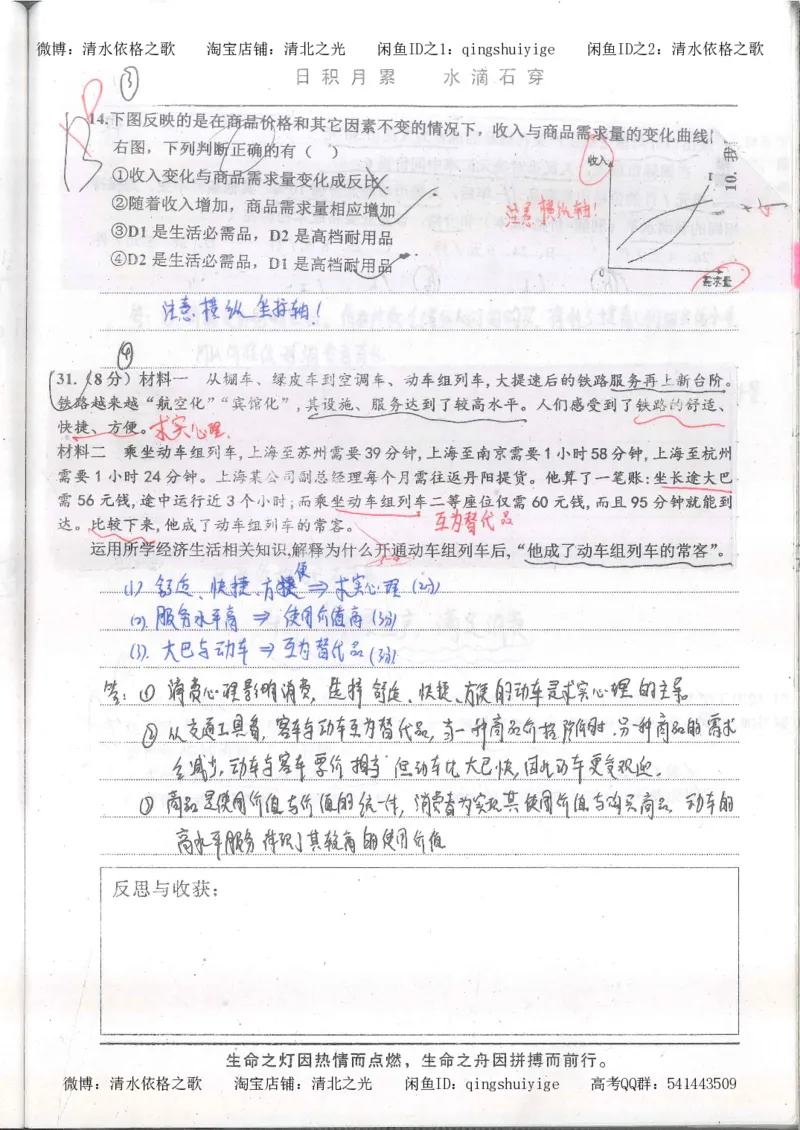 微博：清水依格之歌 淘宝店铺：清北之光 闲鱼ID之1：qingshuiyige 闲鱼ID之2：清水依格之歌
日积月累 水滴石穿
③
14.下图反映的是在商品价格和其它因素不变的情况下，收入与商品需求量的变化曲线
右图，下列判断正确的有（ ）
①收入变化与商品需求量变化成反比
②随着收入增加，商品需求量相应增加
③D1 是生活必需品，D2 是高档耐用品
④D2 是生活必需品，D1 是高档耐用品
收入
注意横纵轴！
0
需求量
10.
注意横纵坐标轴！
④
31.（8分）材料一 从棚车、绿皮车到空调车、动车组列车，大提速后的铁路服务再上新台阶。
铁路越来越“航空化”“宾馆化”，其设施、服务达到了较高水平。人们感受到了铁路的舒适、
快捷、方便。求实心理.
材料二 乘坐动车组列车，上海至苏州需要39分钟，上海至南京需要1小时58分钟，上海至杭州
需要1小时24分钟。上海某公司副总经理每个月需往返丹阳提货。他算了一笔账：坐长途大巴
需56元钱，途中运行近3个小时；而乘坐动车组列车二等座位仅需60元钱，而且95分钟就能到
达。比较下来，他成了动车组列车的常客。 互为替代品
运用所学经济生活相关知识，解释为什么开通动车组列车后，“他成了动车组列车的常客”。
(1) 舒适、快捷、方便 ⇒ 求实心理 (2分)
(2). 服务水平高 ⇒ 使用价值高 (3分)
(3). 大巴与动车 ⇒ 互为替代品 (3分)
答：① 消费心理影响消费，选择舒适、快捷、方便的动车是求实心理的主导
② 从交通工具看，客车与动车互为替代品，当一种商品价格降低时，另一种商品的需求
会减少，动车与客车票价相当，但动车比大巴快，因此动车更受欢迎。
③ 商品是使用价值与价值的统一体，消费者为实现其使用价值而购买商品 动车的
高水平服务体现了其较高的使用价值
反思与收获：
生命之灯因热情而点燃，生命之舟因拼搏而前行。
微博：清水依格之歌 淘宝店铺：清北之光 闲鱼ID：qingshuiyige 高考QQ群：541443509